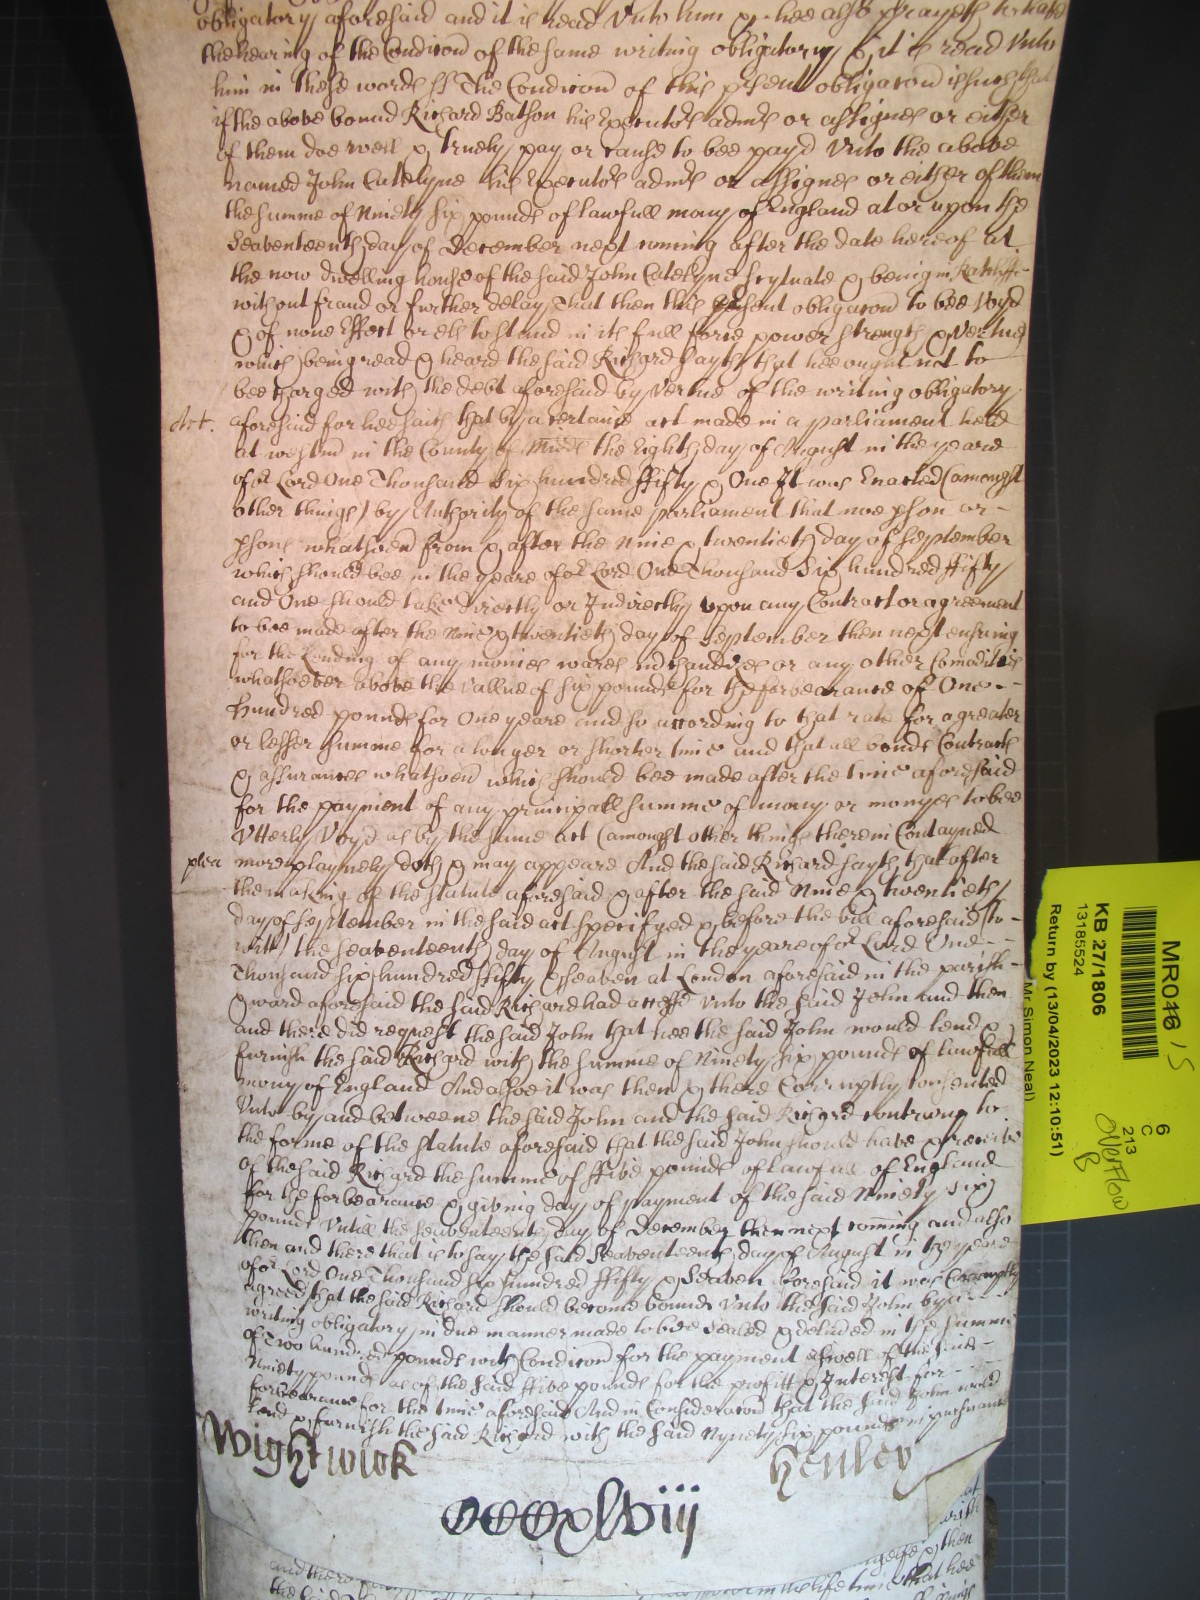 obligatory aforesaid and it is read unto him & hee also prayeth to have
the hearing of the Condicon of the same writing obligatory & it is read unto
him in these words ss The Condicon of this psent obligacon is such that
if the above bound Richard Batson his Executors admrs or assignes or either
of them doe well & truely pay or cause to bee payd Unto the above
named John Catelyne his Executors admrs or assignes or either of them
the summe of Ninety six pounds of lawfull mony of England at or upon the
Seaventeenth day of December next coming after the date hereof at
the now dwelling house of the said John Catelyne scytuate & being in Ratcliffe
without fraud or further delay That then this psent obligacon to bee Voyd
& of none Effect or els to stand in its full force power strength & Vertue
which being read & heard the said Richard sayth that hee ought not to
bee charged with the debt aforesaid by Vertue of the writing obligatory
Act. aforesaid for hee saith that by a certaine act made in a parliament held
at westm in the County of Midd the Eighth day of August in the yeare
of or Lord One Thousand Six hundred ffifty & One It was Enacted (amongst
other things) by Authority of the same parliament that noe pson or
psons whatsoevr from & after the Nine & twentieth day of September
which should bee in the yeare of or Lord One Thousand Six hundred ffifty
and One should take directly or Indirectly upon any Contract or agreement
to bee made after the Nine & twentieth day of September then next ensuing
for the Lending of any monies wares mchandizes or any other Comodities
whatsoever above the vallue of six pounds for the forbearance of One
hundred pounds for One yeare and so according to that rate for a greater
or lesser summe for a longer or shorter time and that all bonds Contracts
& assurances whatsoevr which should bee made after the time aforesaid
for the payment of any principall summe of mony or monyes to bee
Utterly Voyd as by the same act (amongst other things therein Contayned
plea more playnely doth & may appeare And the said Richard sayth that after
the making of the statute aforesaid & after the said Nine & twentieth
day of September in the said act specifyed & before the bill aforesaid (to
witt) the seaventeenth day of August in the yeare of or Lord One
Thousand six hundred ffifty & seaven at London aforesaid in the parish
& ward aforesaid the said Richard had accesse unto the said John and then
and there did request the said John that hee the said John would lend &
furnish the said Richard with the summe of Ninety six pounds of lawfull
mony of England And alsoe it was then & there Corruptly consented
Unto by and betweene the said John and the said Richard contrary to
the forme of the statute aforesaid that the said John should have & receive
of the said Richard the summe of ffive pounds of lawfull of England
for the forbearance & giving day of payment of the said Ninety six
pounds Untill the seaventeenth day of December then next coming and also
then and there that is to say the said Seaventeenth day of August in the yeare
of or Lord One Thousand six hundred ffifty & Seaven aforesaid it was Corruptly
agreed that the said Richard should become bound Unto the said John by a
writing obligatory in due manner made to bee sealed & delivred in the summe
of Two hundred pounds with Condicon for the payment aswell of the said
Ninety pounds as of the said ffive pounds for the profitt & Interest for
forbearance for the time aforesaid And in Consideracon that the said John would
lend & furnish the said Richard with the said Nynety six pounds in pursuance
Wightwick Henley
CCCxlviij
MR046
KB 27/1806
13185524
Return by (13/04/2023 12:10:51)
Mr Simon Neal)
6
C
213
overflow
B